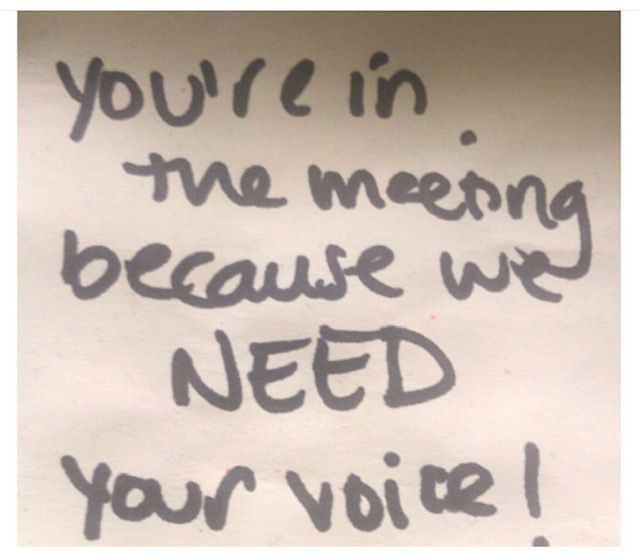 you're in
the meeting
because we
NEED
your voice!